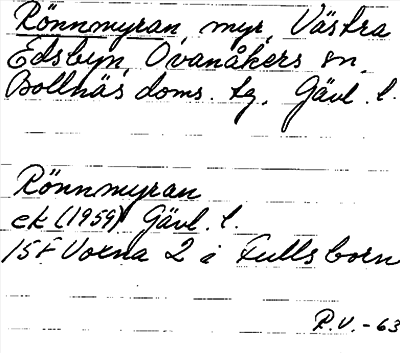 Rönnmyran, myr, Västra
Edsbyn, Ovanåkers sn,
Bollnäs doms. tg, Gävl. l.
Rönnmyran
ek (1959) Gävl. l.
15F Voxna 2 i Fullsborn
R.V. -63